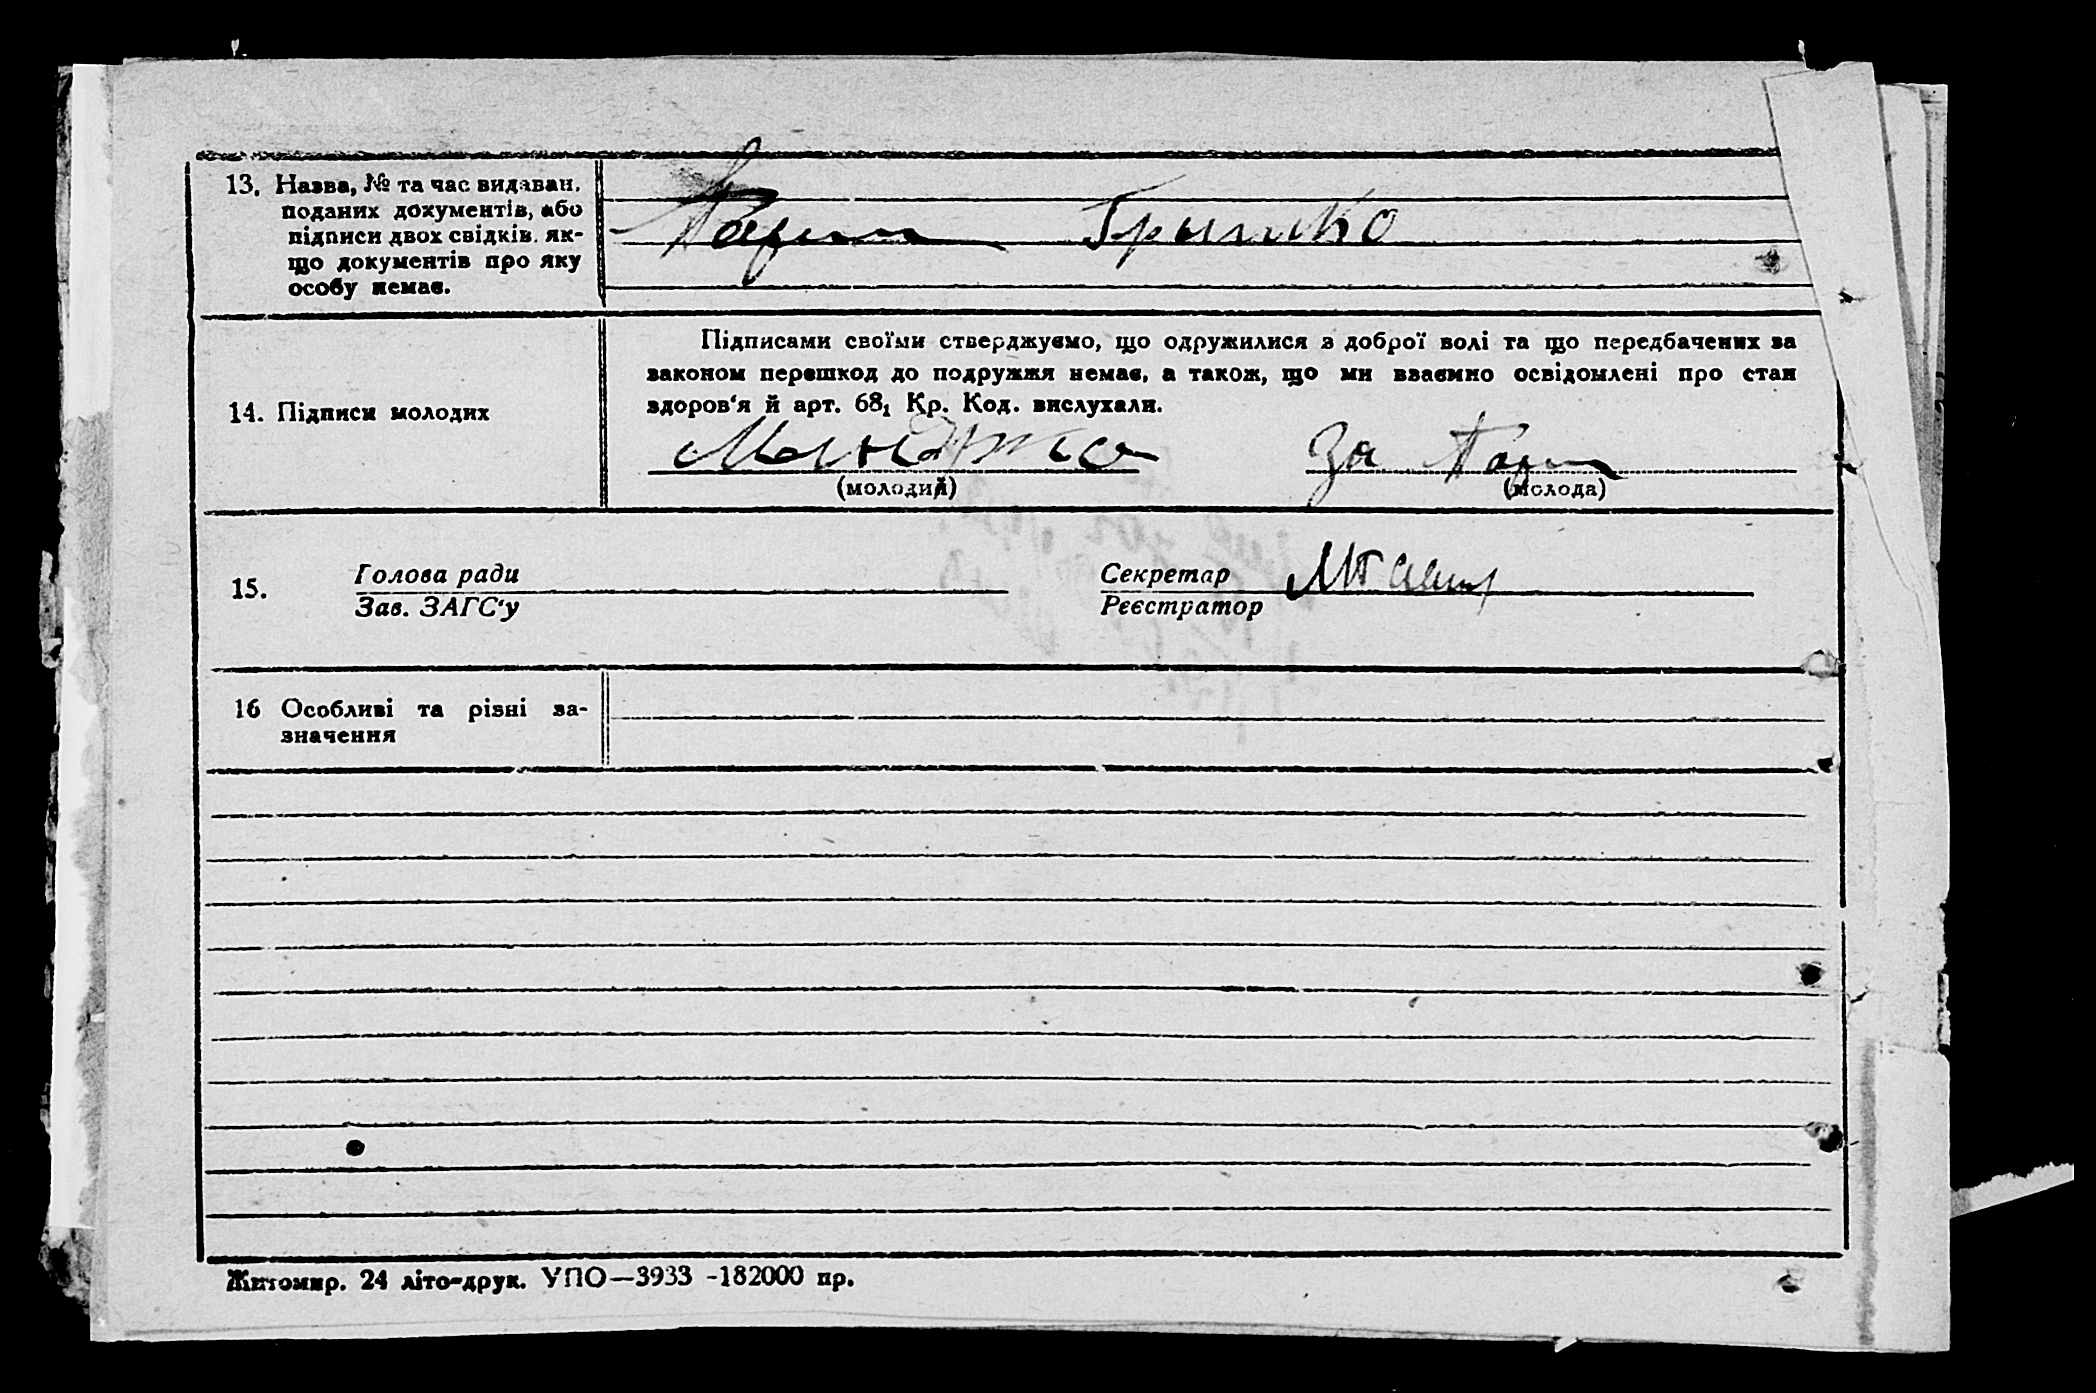 13. Назва, № та час видаван.
поданих документів, або
підписи двох свідків, як-
що документів про яку
особу немає.
Грышко
Підписами своїми стверджуємо, що одружилися з доброї волі та що передбачених за
законом перешкод до подружжя немає, а також, що ми взаємно освідомлені про стан
здоров'я й арт. 68₁ Кр. Код. вислухали.
14. Підписи молодих
За
(молодий) (молода)
15.
Голова ради
Зав. ЗАГС'у
Секретар
Реєстратор
16 Особливі та різні за-
значення
Житомир. 24 літо-друк. УПО—3933 -182000 пр.